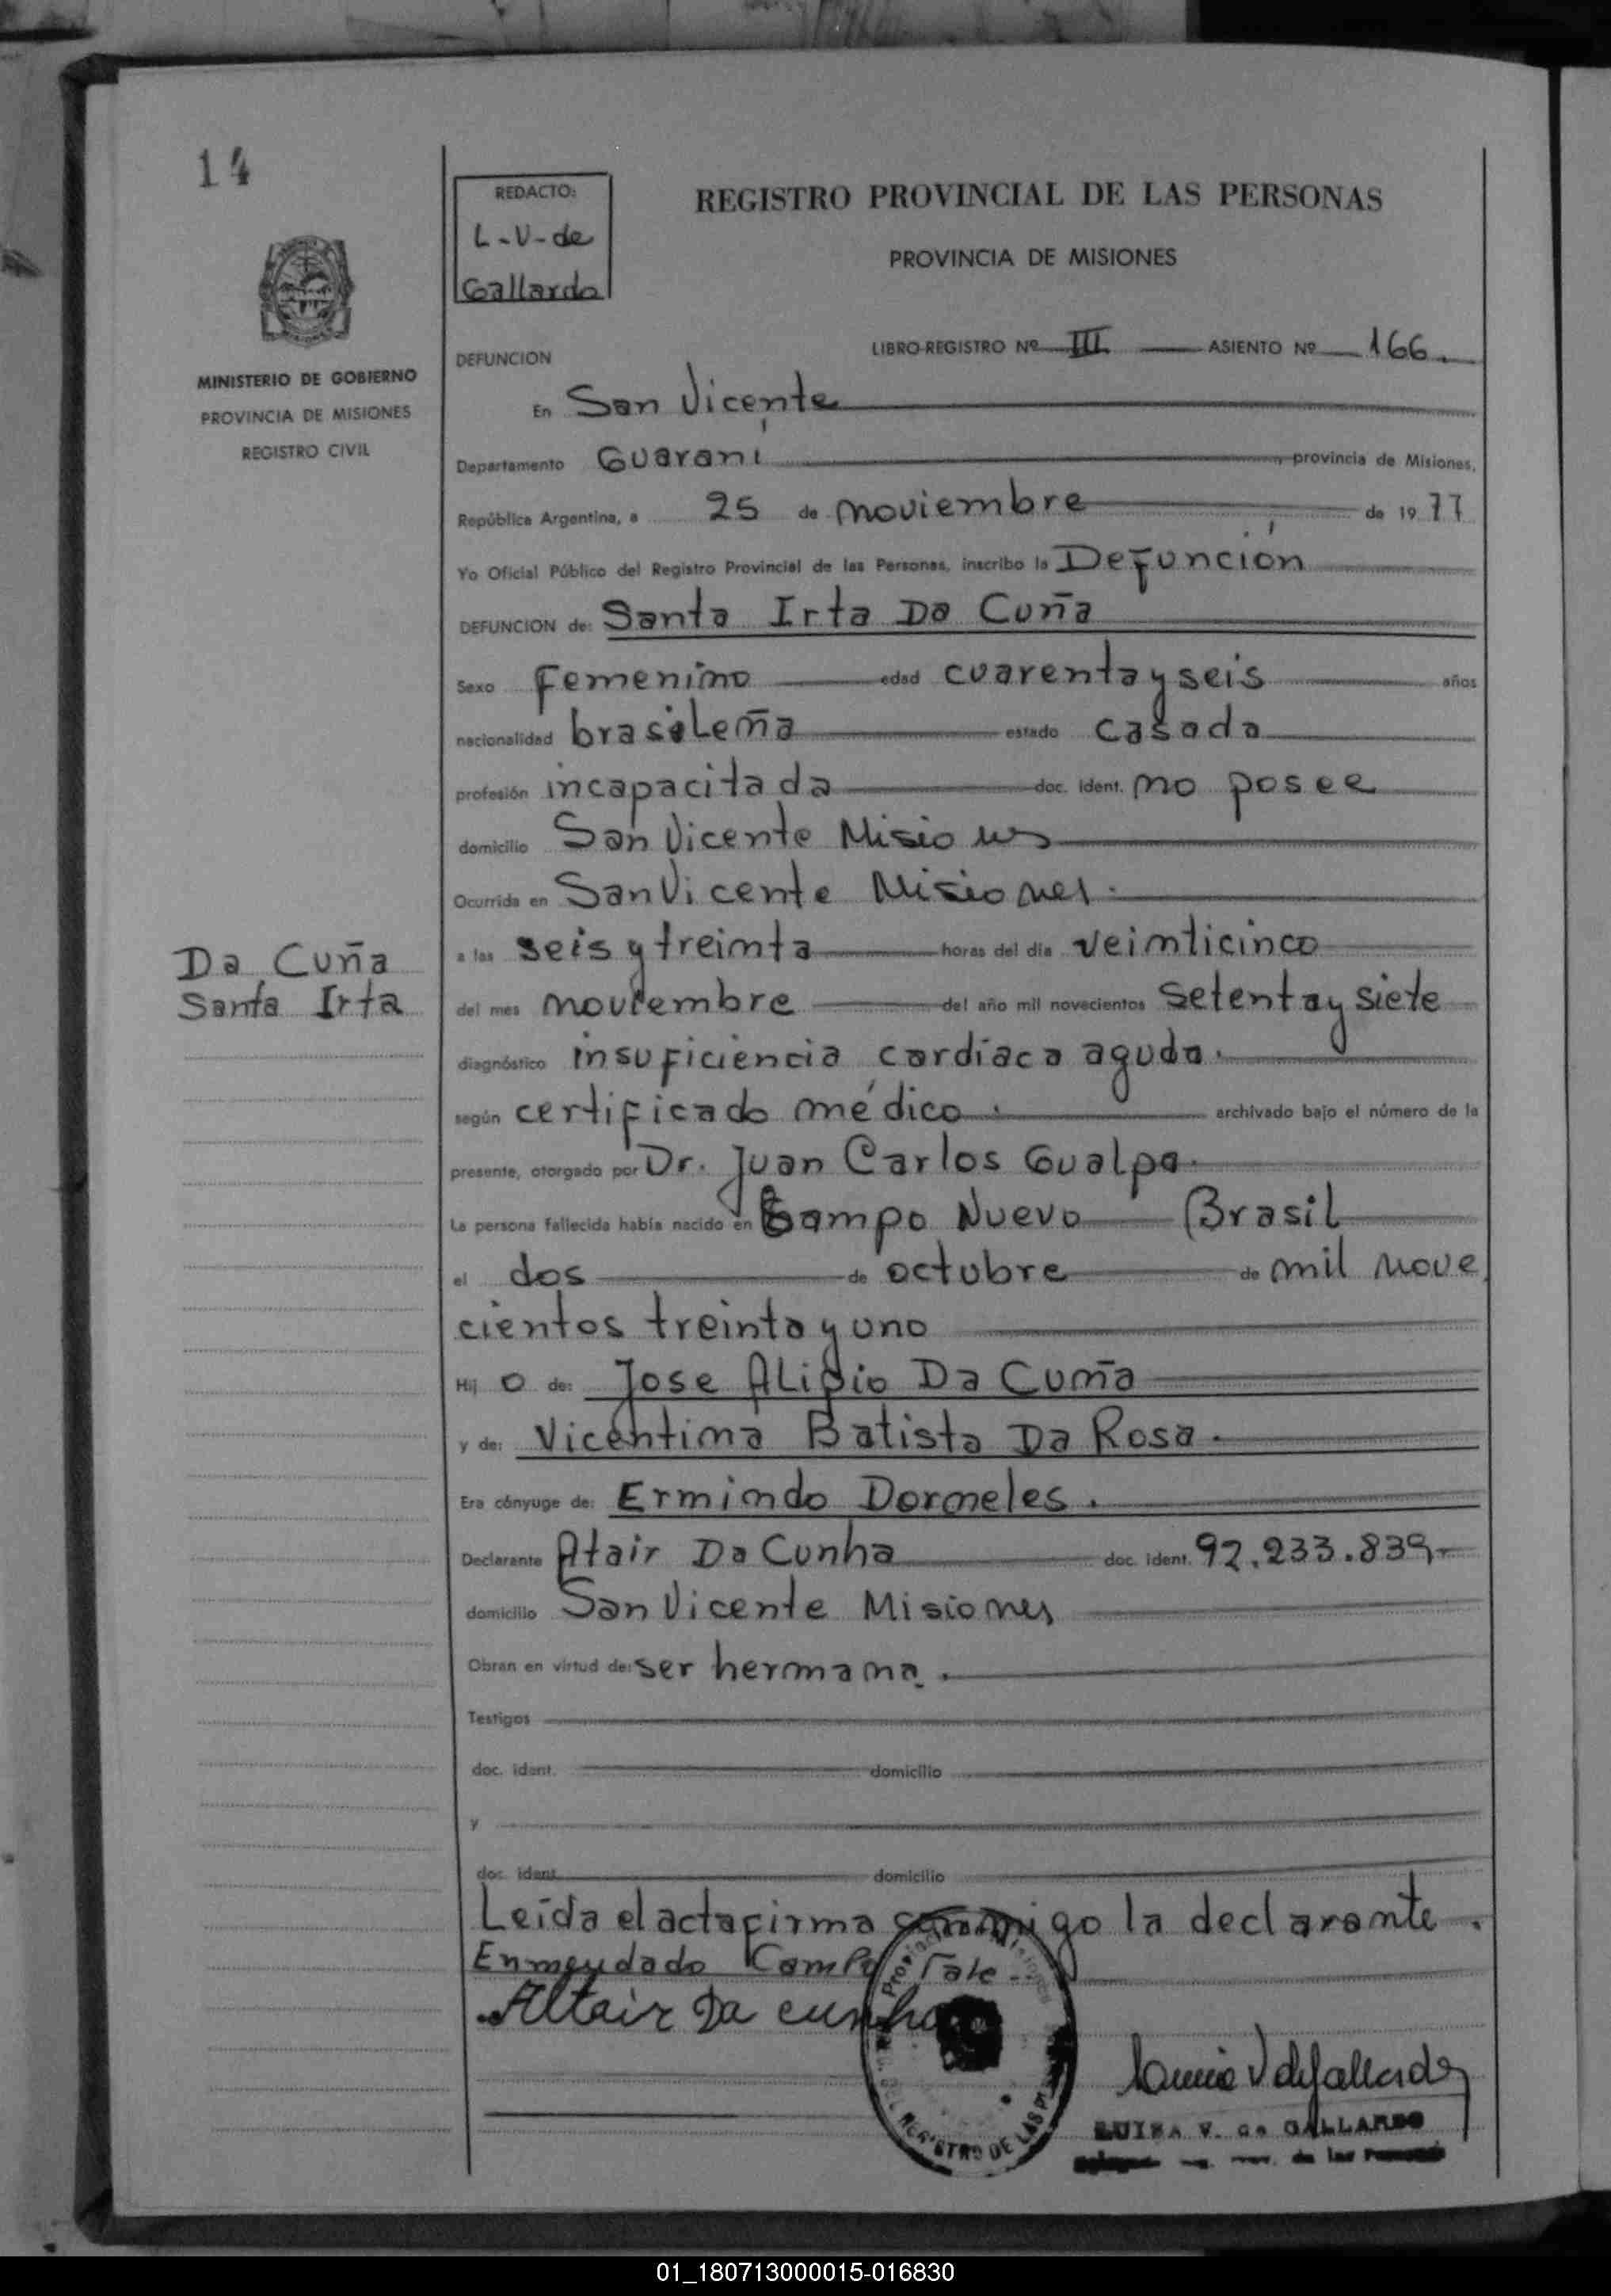 14
REDACTO:
L-V-de
Gallardo
REGISTRO PROVINCIAL DE LAS PERSONAS
PROVINCIA DE MISIONES
MINISTERIO DE GOBIERNO
PROVINCIA DE MISIONES
REGISTRO CIVIL
DEFUNCION
LIBRO-REGISTRO Nº III ASIENTO Nº 166.
En San Vicente
Departamento Guaraní, provincia de Misiones,
República Argentina, a 25 de noviembre de 1977
Yo Oficial Público del Registro Provincial de las Personas, inscribo la Defunción
DEFUNCION de: Santa Irta Da Cuña
Sexo Femenino edad cuarenta y seis años
nacionalidad brasileña estado casada
profesión incapacitada doc. ident. no posee
domicilio San Vicente Misiones
Ocurrida en San Vicente Misiones.
a las seis y treinta horas del día veinticinco
Da Cuña
Santa Irta
del mes noviembre del año mil novecientos setenta y siete
diagnóstico insuficiencia cardíaca aguda.
según certificado médico. archivado bajo el número de la
presente, otorgado por Dr. Juan Carlos Gualpa.
La persona fallecida había nacido en Campo Nuevo Brasil
el dos de octubre de mil nove
cientos treinta y uno
Hij o de: Jose Alipio Da Cuña
y de: Vicentina Batista Da Rosa.
Era cónyuge de: Ermindo Dorneles.
Declarante Atair Da Cunha doc. ident. 92.233.839-
domicilio San Vicente Misiones
Obran en virtud de: ser hermana.
Testigos
doc. ident. domicilio
y
doc. ident. domicilio
Leída el acta firma conmigo la declarante.
Enmendado Campo Vale.
Altair Da cunha
LUISA V. de GALLARDO
de las
REGISTRO DE LAS
01_180713000015-016830